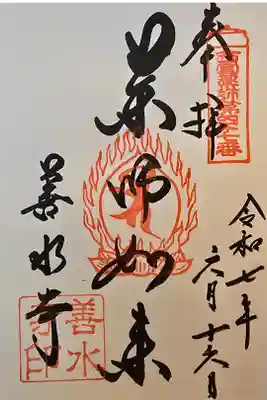 奉拝
西國薬師第四七番
令和七年
六月十六日
薬師如来
善水寺
善水寺印